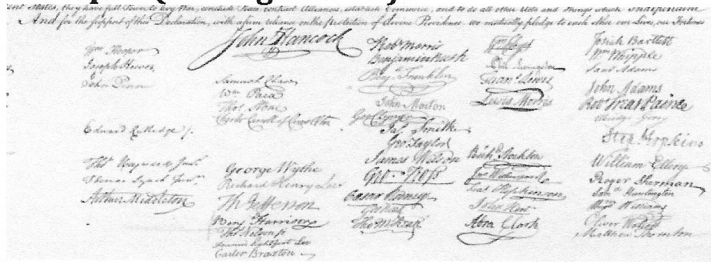 And for the support of this Declaration, with a firm reliance on the Protection of divine Providence, we mutually pledge to each other our Lives, our Fortunes
Wm Hooper
Joseph Hewes
John Penn
Edward Rutledge
Thos Heyward Junr
Thomas Lynch Junr
Arthur Middleton
John Hancock
Samuel Chase
Wm Paca
Thos Stone
Charles Carroll of Carrollton
George Wythe
Richard Henry Lee
Th Jefferson
Benj Harrison
Thos Nelson jr
Francis Lightfoot Lee
Carter Braxton
Robt Morris
Benjamin Rush
Benja Franklin
John Morton
Geo Clymer
Jas Smith
Geo Taylor
James Wilson
Geo. Ross
Caesar Rodney
Geo Read
Tho M:Kean
Phil. Livingston
Frans Lewis
Lewis Morris
Richd Stockton
Jno Witherspoon
Fras Hopkinson
John Hart
Abra Clark
Josiah Bartlett
Wm Whipple
Saml Adams
John Adams
Robt Treat Paine
Elbridge Gerry
Step Hopkins
William Ellery
Roger Sherman
Saml Huntington
Wm Williams
Oliver Wolcott
Matthew Thornton